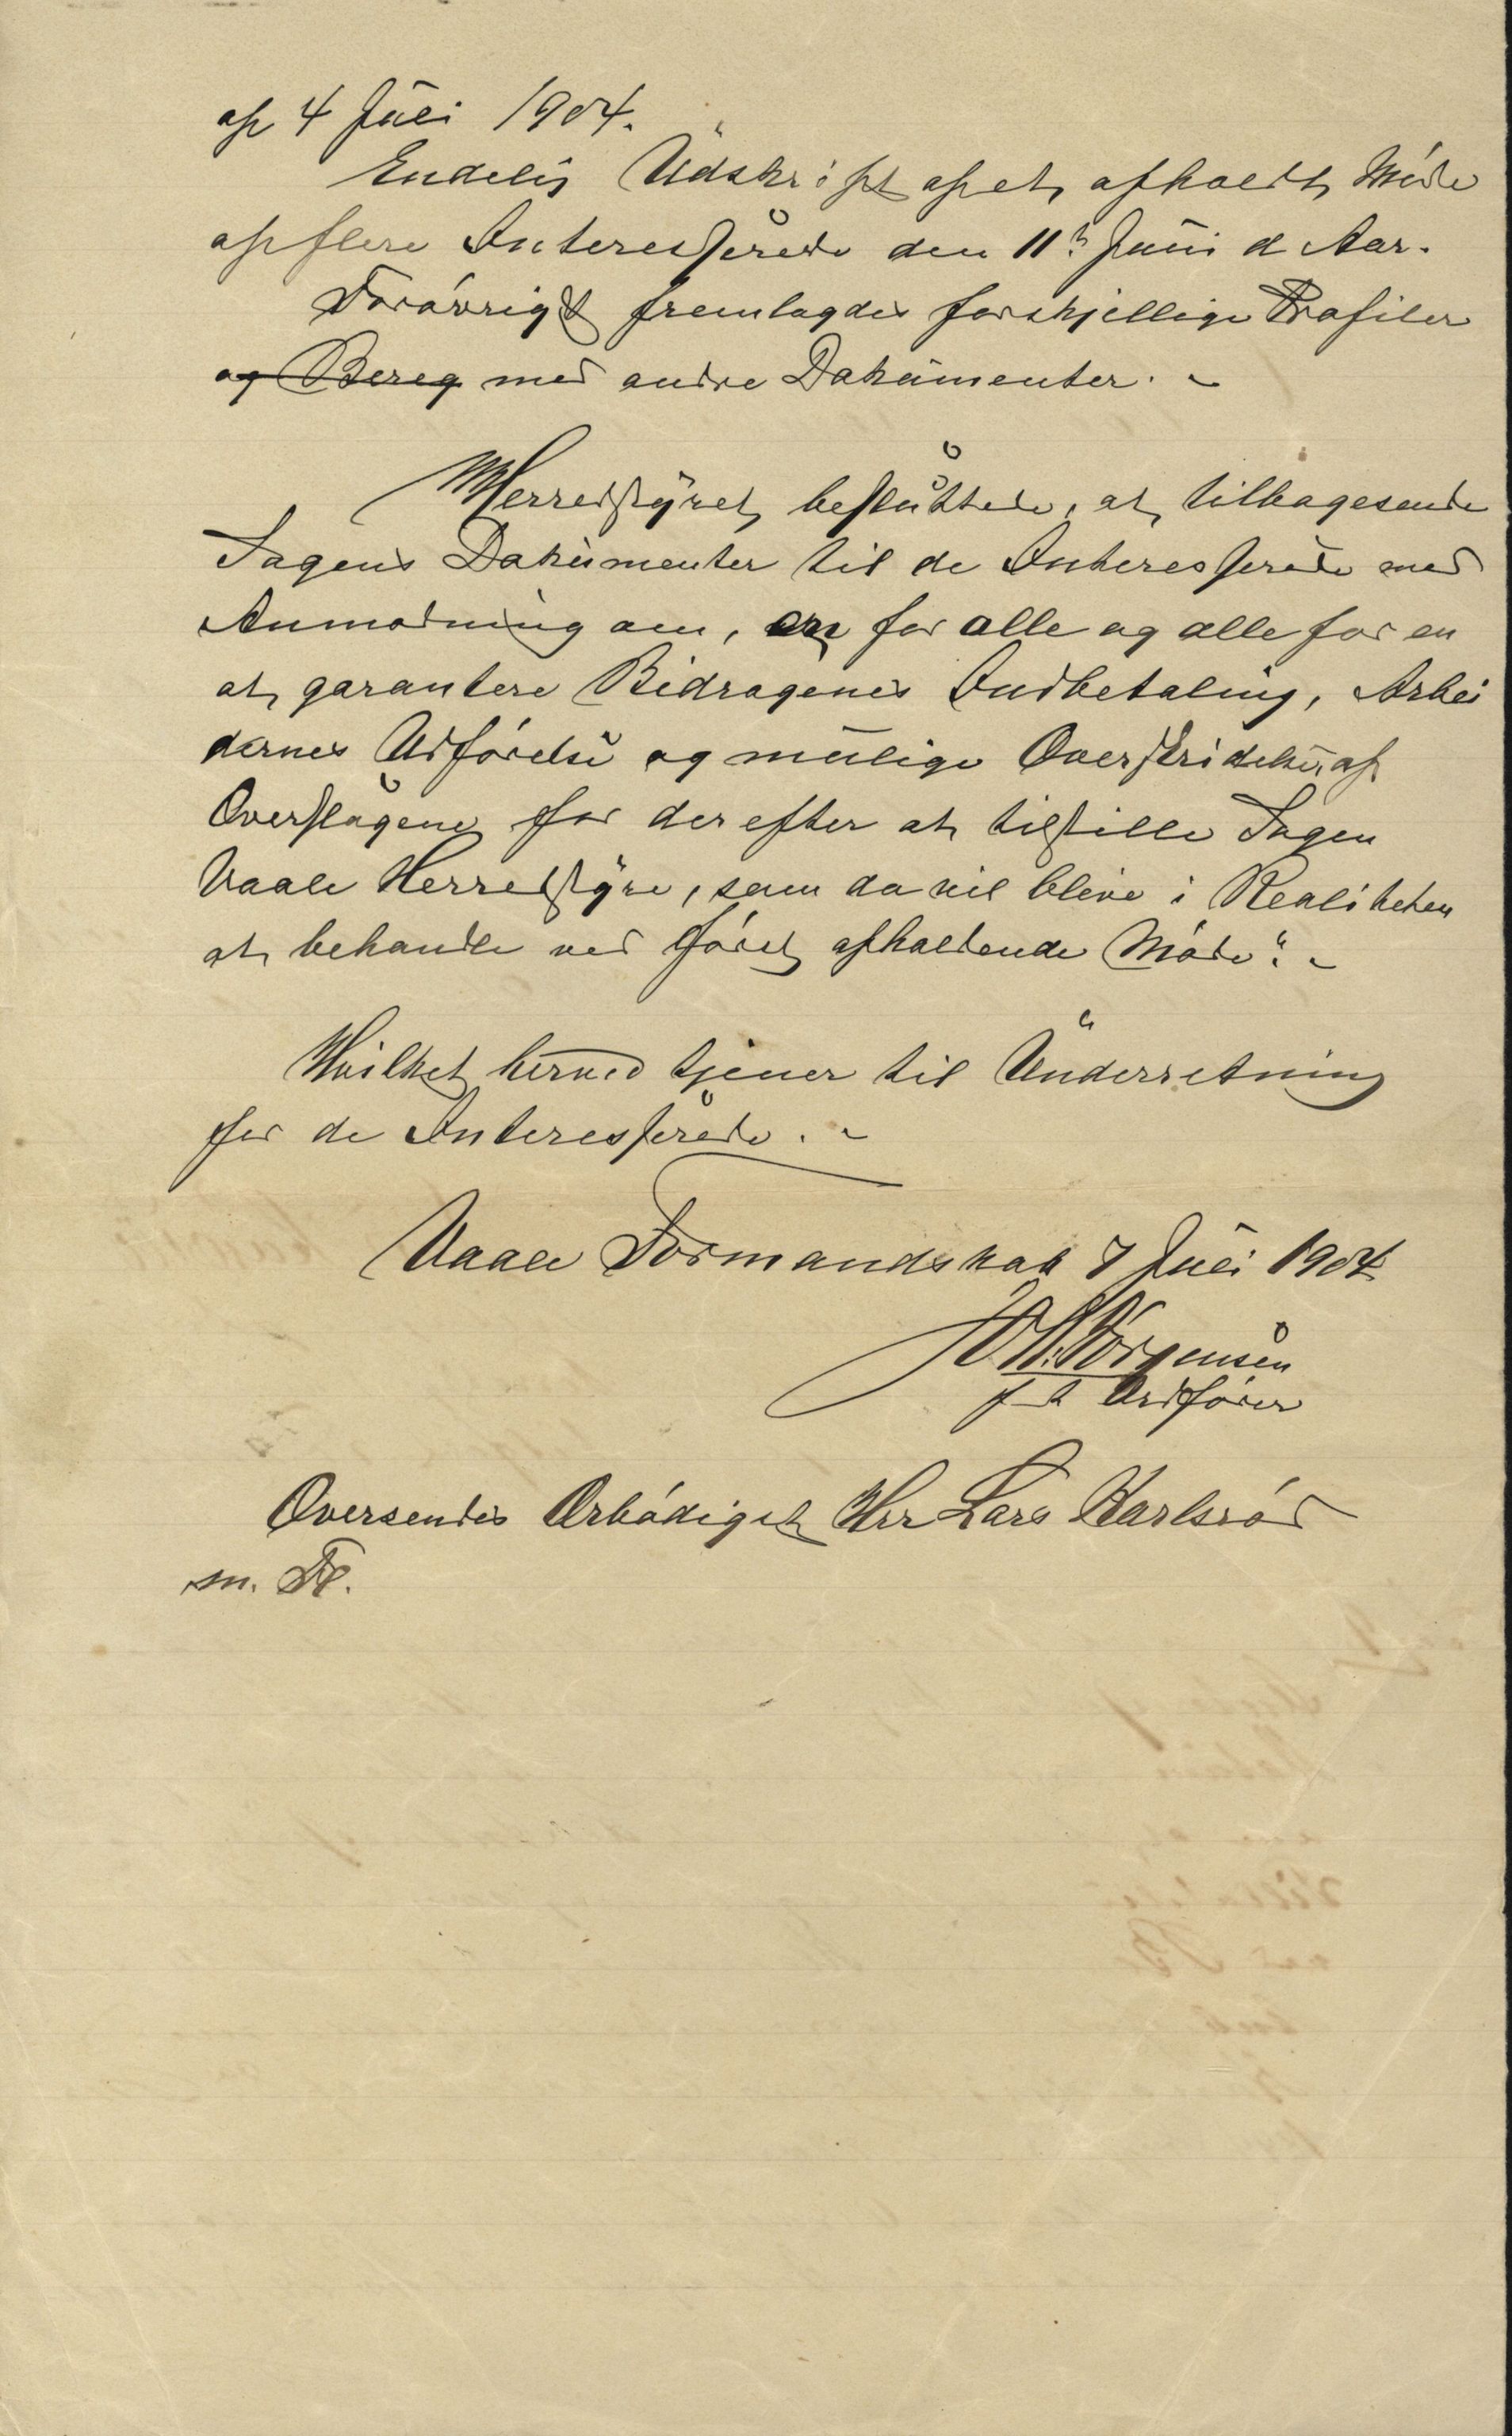 af 4 Juli 1904.
Endelig Udskrift af et afholdt Møde
af flere Interesserede den 11te Juni d Aar.
Forøvrigt fremlagdes forskjellige Profiler
og Bereg med andre Dokumenter. -
Herredstyret besluttede, at tilbagesende
Sagens Dokumenter til de Interesserede med
Anmodning om, en for alle og alle for en
at garantere Bidragenes Indbetaling, Arbei
dernes Udførelse og mulige Overskridelse af
Overslagene for der efter at tilstille Sagen
Vaale Herredstyre, som da vil blive i Realiteten
at behandle ved først afholdende Møde". -
Hvilket herved tjener til Underretning
for de Interesserede. -
Vaale Formandskab 7 Juli 1904
Jørgensen
f t Ordfører
Oversendes Ærbødigst Hrr Lars Karlsrød
m. Fl.